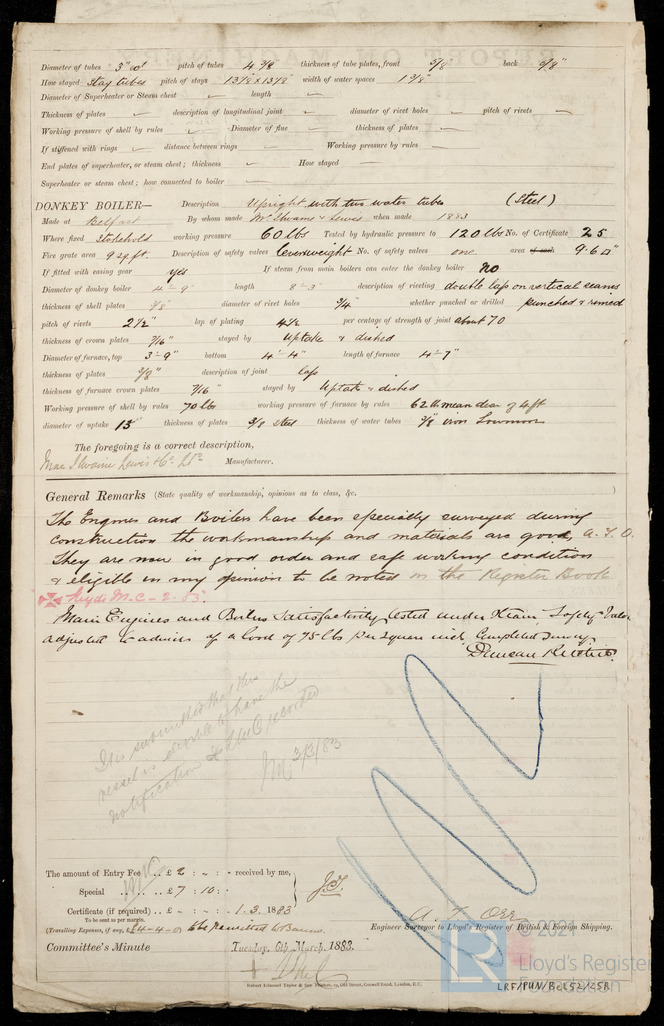 Diameter of tubes 3" od pitch of tubes 4 3/8 thickness of tube plates, front 5/8 back 5/8"
How stayed Stay tubes pitch of stays 13 1/8 x 13 1/8 width of water spaces 1 3/8"
Diameter of Superheater or Steam chest — length —
Thickness of plates — description of longitudinal joint — diameter of rivet holes — pitch of rivets —
Working pressure of shell by rules — Diameter of flue — thickness of plates —
If stiffened with rings — distance between rings — Working pressure by rules —
End plates of superheater, or steam chest; thickness — How stayed —
Superheater or steam chest; how connected to boiler —
DONKEY BOILER— Description Upright with two water tubes (Steel)
Made at Belfast By whom made McIlwaine & Lewis when made 1883
Where fixed Stokehold working pressure 60 lbs Tested by hydraulic pressure to 120 lbs No. of Certificate 25
Fire grate area 9 sq ft. Description of safety valves leverweight No. of safety valves one area of each 9.6 □"
If fitted with easing gear yes If steam from main boilers can enter the donkey boiler no
Diameter of donkey boiler 4'-9" length 8'-3" description of riveting double lap on vertical seams
thickness of shell plates 3/8" diameter of rivet holes 3/4" whether punched or drilled punched & rimed
pitch of rivets 2 1/2" lap of plating 4 1/2 per centage of strength of joint about 70
thickness of crown plates 7/16" stayed by Uptake & dished
Diameter of furnace, top 3'-9" bottom 4'-4" length of furnace 4'-7"
thickness of plates 3/8" description of joint lap
thickness of furnace crown plates 7/16" stayed by Uptake & dished
Working pressure of shell by rules 70 lbs working pressure of furnace by rules 62 lb mean diar of 4 ft
diameter of uptake 13" thickness of plates 3/8 steel thickness of water tubes 3/8" iron Lowmoor
The foregoing is a correct description,
MacIlwaine Lewis & Co Ld Manufacturer.
General Remarks (State quality of workmanship, opinions as to class, &c.
The Engines and Boilers have been specially surveyed during
construction the workmanship and materials are good, A. F. O.
They are now in good order and safe working condition
& eligible in my opinion to be noted in the Register Book
Lloyds M.C - 2. 83.
Main Engines and Boilers Satisfactorily tested under Steam, Safety Valves
adjusted to admit of a load of 75 lbs per square inch Completed Survey
Duncan Ritchie
It is submitted that this
vessel is eligible to have the
notification LMC recorded
3/3/83
The amount of Entry Fee .. £ 2 : - : - received by me,
Special .. .. £ 7 : 10 : -
Certificate (if required) .. £ - : - : - 1. 3. 1883
To be sent as per margin.
(Travelling Expenses, if any, £4-4-0)
A. F. Orr
Engineer Surveyor to Lloyd's Register of British & Foreign Shipping.
Committee's Minute Tuesday, 6th March, 1883.
+ LMC
Robert Edmund Taylor & Son Printers, 19, Old Street, Goswell Road, London, E.C.
© 2021
LR
Lloyd's Register
Foundation
LRF/PUN/BEL52/258